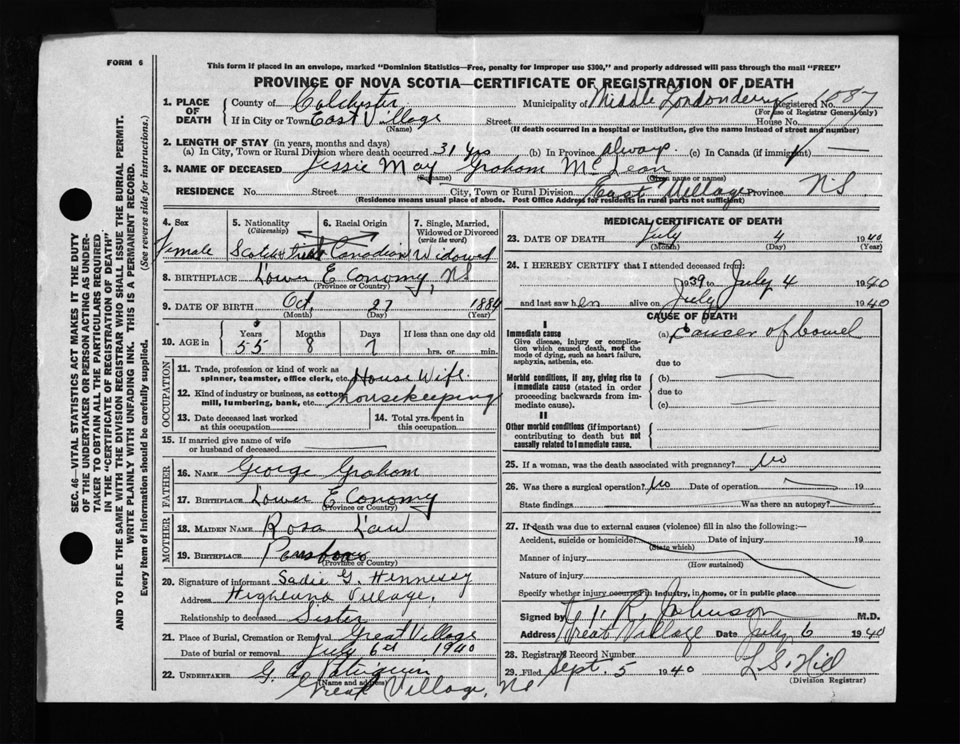 FORM 6
This form if placed in an envelope, marked "Dominion Statistics—Free, penalty for improper use $300," and properly addressed will pass through the mail "FREE"
PROVINCE OF NOVA SCOTIA—CERTIFICATE OF REGISTRATION OF DEATH
SEC. 46—VITAL STATISTICS ACT MAKES IT THE DUTY
OF THE UNDERTAKER OR PERSON ACTING AS UNDER-
TAKER TO OBTAIN ALL THE PARTICULARS REQUIRED
IN THE "CERTIFICATE OF REGISTRATION OF DEATH"
AND TO FILE THE SAME WITH THE DIVISION REGISTRAR WHO SHALL ISSUE THE BURIAL PERMIT.
WRITE PLAINLY WITH UNFADING INK. THIS IS A PERMANENT RECORD.
Every item of information should be carefully supplied. (See reverse side for instructions.)
1. PLACE OF DEATH County of Colchester Municipality of Middle Londonderry Registered No. 1087
(For use of Registrar General only)
If in City or Town East Village Street House No.
(Name) (If death occurred in a hospital or institution, give the name instead of street and number)
2. LENGTH OF STAY (in years, months and days)
(a) In City, Town or Rural Division where death occurred 31 yrs (b) In Province always (c) In Canada (if immigrant) —
3. NAME OF DECEASED Jessie May Graham McLean
(Surname) (Given name or names)
RESIDENCE No. Street City, Town or Rural Division East Village Province NS
(Residence means usual place of abode. Post Office Address for residents in rural parts not sufficient)
4. Sex Female
5. Nationality (Citizenship) Scotch
6. Racial Origin Canadian
7. Single, Married, Widowed or Divorced (write the word) Widowed
8. BIRTHPLACE Lower Economy, NS
(Province or Country)
9. DATE OF BIRTH Oct. 27 1884
(Month) (Day) (Year)
10. AGE in Years 55 Months 8 Days 7 If less than one day old hrs. or min.
OCCUPATION
11. Trade, profession or kind of work as spinner, teamster, office clerk, etc. House Wife
12. Kind of industry or business, as cotton mill, lumbering, bank, etc. housekeeping
13. Date deceased last worked at this occupation
14. Total yrs. spent in this occupation
15. If married give name of wife or husband of deceased
FATHER
16. NAME George Graham
17. BIRTHPLACE Lower Economy
(Province or Country)
MOTHER
18. MAIDEN NAME Rosa Law
19. BIRTHPLACE
(Province or Country)
20. Signature of informant Sadie G. Hennessy
Address Highland Village,
Relationship to deceased Sister
21. Place of Burial, Cremation or Removal Great Village
Date of burial or removal July 6th 1940
22. UNDERTAKER G. Patriquin
(Name and address)
Great Village, NS
MEDICAL CERTIFICATE OF DEATH
23. DATE OF DEATH July 4 1940
(Month) (Day) (Year)
24. I HEREBY CERTIFY that I attended deceased from:
1939 to July 4 1940
and last saw her alive on July 1940
CAUSE OF DEATH
I
Immediate cause (a) Cancer of bowel
Give disease, injury or complication which caused death, not the mode of dying, such as heart failure, asphyxia, asthenia, etc.
due to
Morbid conditions, if any, giving rise to immediate cause (stated in order proceeding backwards from immediate cause).
(b)
due to
(c)
II
Other morbid conditions (if important) contributing to death but not causally related to immediate cause.
25. If a woman, was the death associated with pregnancy? No
26. Was there a surgical operation? No Date of operation 19
State findings Was there an autopsy?
27. If death was due to external causes (violence) fill in also the following:—
Accident, suicide or homicide? Date of injury 19
(State which)
Manner of injury
(How sustained)
Nature of injury
Specify whether injury occurred in industry, in home, or in public place
Signed by R. Johnson M.D.
Address Great Village Date July 6 1940
28. Registrar's Record Number
29. Filed Sept. 5 1940 L S Hill
(Division Registrar)